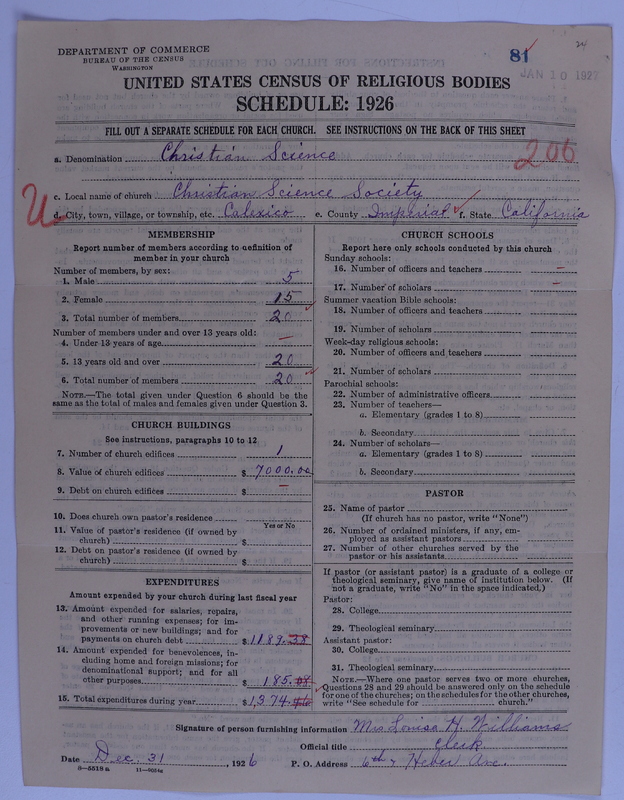 DEPARTMENT OF COMMERCE
BUREAU OF THE CENSUS
WASHINGTON
81
24
JAN 10 1927
UNITED STATES CENSUS OF RELIGIOUS BODIES
SCHEDULE: 1926
FILL OUT A SEPARATE SCHEDULE FOR EACH CHURCH. SEE INSTRUCTIONS ON THE BACK OF THIS SHEET
a. Denomination Christian Science 206
c. Local name of church Christian Science Society
U
d. City, town, village, or township, etc. Calexico e. County Imperial f. State California
MEMBERSHIP
Report number of members according to definition of
member in your church
Number of members, by sex:
1. Male 5
2. Female 15
3. Total number of members 20
Number of members under and over 13 years old:
4. Under 13 years of age —
5. 13 years old and over 20
6. Total number of members 20
NOTE.—The total given under Question 6 should be the
same as the total of males and females given under Question 3.
CHURCH BUILDINGS
See instructions, paragraphs 10 to 12
7. Number of church edifices 1
8. Value of church edifices $ 7000.00
9. Debt on church edifices $ —
10. Does church own pastor's residence
Yes or No
11. Value of pastor's residence (if owned by
church) $
12. Debt on pastor's residence (if owned by
church) $
EXPENDITURES
Amount expended by your church during last fiscal year
13. Amount expended for salaries, repairs,
and other running expenses; for im-
provements or new buildings; and for
payments on church debt $ 1189.38
14. Amount expended for benevolences, in-
cluding home and foreign missions; for
denominational support; and for all
other purposes $ 185.08
15. Total expenditures during year $ 1,374.46
CHURCH SCHOOLS
Report here only schools conducted by this church
Sunday schools:
16. Number of officers and teachers —
17. Number of scholars —
Summer vacation Bible schools:
18. Number of officers and teachers
19. Number of scholars
Week-day religious schools:
20. Number of officers and teachers
21. Number of scholars
Parochial schools:
22. Number of administrative officers
23. Number of teachers—
a. Elementary (grades 1 to 8)
b. Secondary
24. Number of scholars—
a. Elementary (grades 1 to 8)
b. Secondary
PASTOR
25. Name of pastor
(If church has no pastor, write "None")
26. Number of ordained ministers, if any, em-
ployed as assistant pastors
27. Number of other churches served by the
pastor or his assistants
If pastor (or assistant pastor) is a graduate of a college or
theological seminary, give name of institution below. (If
not a graduate, write "No" in the space indicated.)
Pastor:
28. College
29. Theological seminary
Assistant pastor:
30. College
31. Theological seminary
NOTE.—Where one pastor serves two or more churches,
Questions 28 and 29 should be answered only on the schedule
for one of the churches; on the schedules for the other churches,
write "See schedule for church."
Signature of person furnishing information Mrs Louisa H. Williams
Official title Clerk
Date Dec. 31, 1926 P. O. Address 6th & Heber Ave.
8—5518a 11—9024a